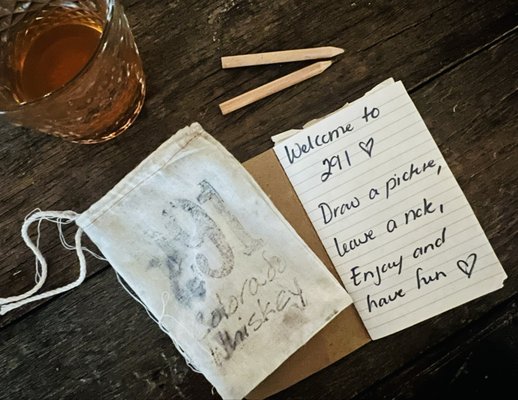 291
Colorado
Whiskey
Welcome to
291 ♡
Draw a picture,
leave a note,
Enjoy and
have fun ♡